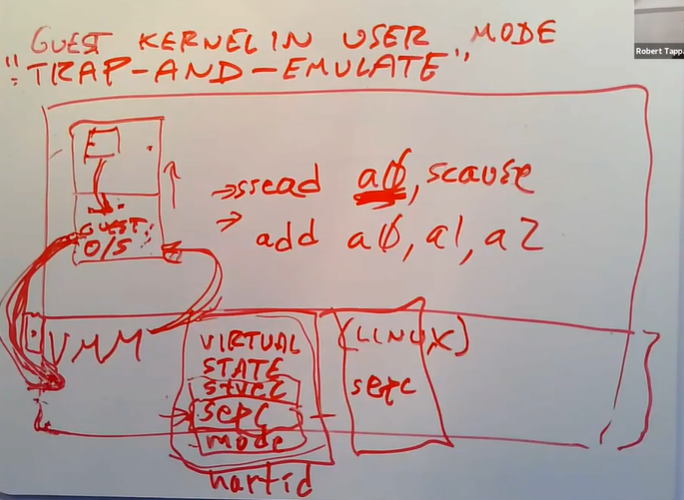 GUEST KERNEL IN USER MODE
"TRAP-AND-EMULATE"
Robert Tappa
E
GUEST
O/S
ssread a0, scause
add a0, a1, a2
VMM
VIRTUAL
STATE
stvec
sepc
mode
hartid
(LINUX)
sepc